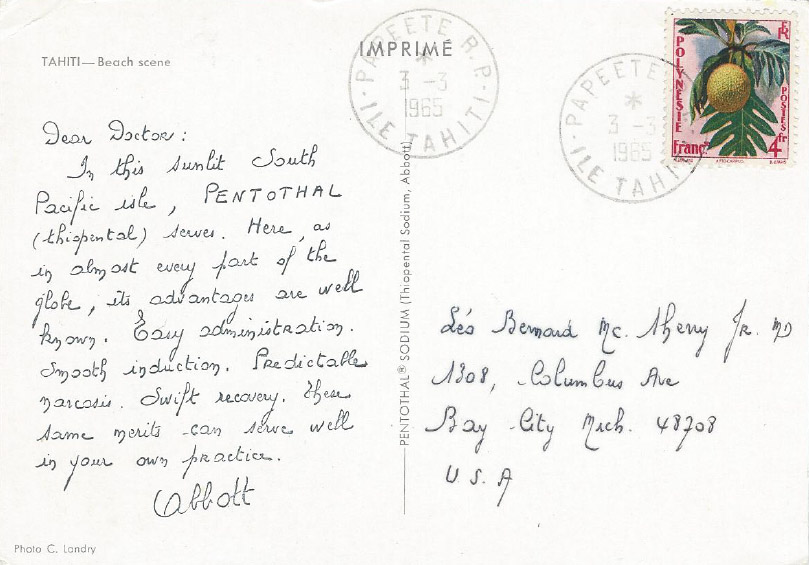 TAHITI—Beach scene
IMPRIMÉ
PAPEETE R.P.
3 -3
1965
ILE TAHITI
PAPEETE
3 -3
1965
ILE TAHITI
POLYNESIE
Franç
RF
POSTES
4 fr
Dear Doctor:
In this sunlit South
Pacific isle, PENTOTHAL
(thiopental) serves. Here, as
in almost every part of the
globe, its advantages are well
known. Easy administration.
Smooth induction. Predictable
narcosis. Swift recovery. These
same merits can serve well
in your own practice.
Abbott
PENTOTHAL® SODIUM (Thiopental Sodium, Abbott)
Léo Bernard Mc. Sherry Jr. MD
1308, Columbus Ave
Bay City Mich. 48708
U.S.A
Photo C. Landry